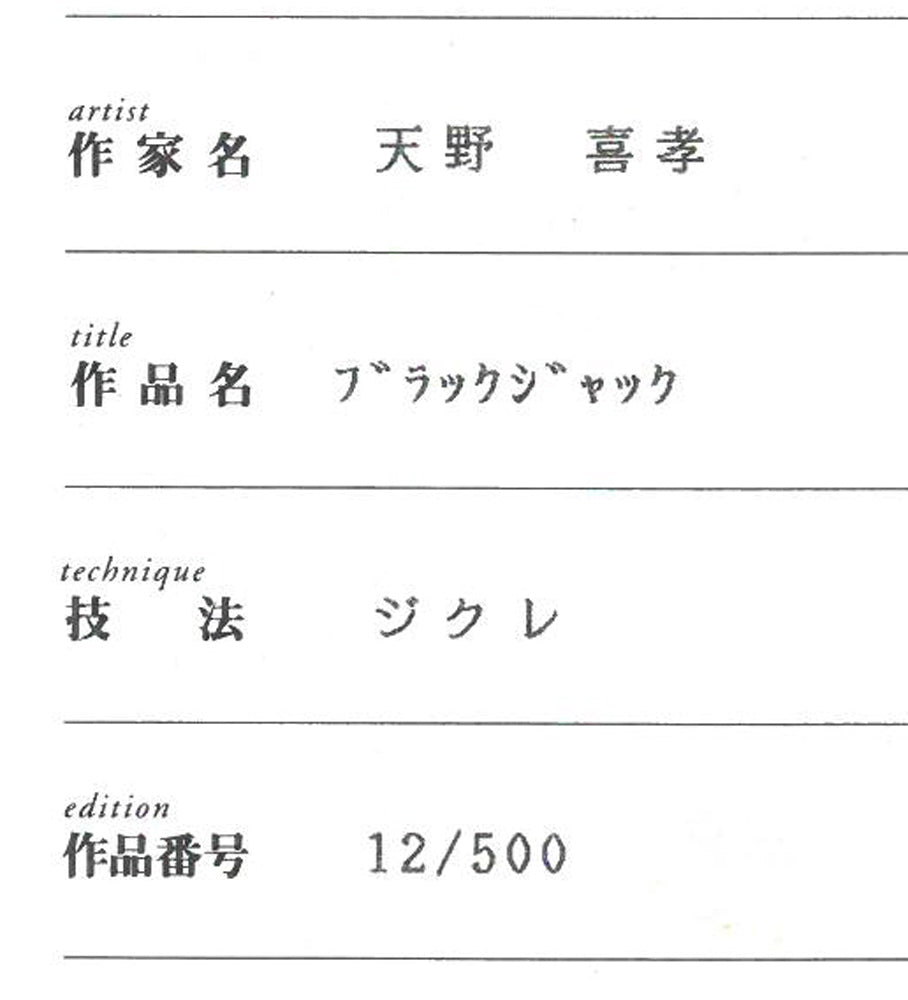 artist
作家名 天野 喜孝
title
作品名 ﾌﾞﾗｯｸｼﾞｬｯｸ
technique
技 法 ジクレ
edition
作品番号 12/500